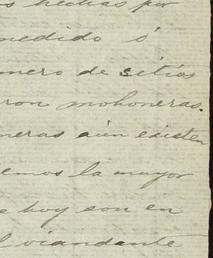 s hechas por
medido ó
mero de sitios
ron mohoneras.
neras aún existen
emos la mayor
e hoy son en
l viandante